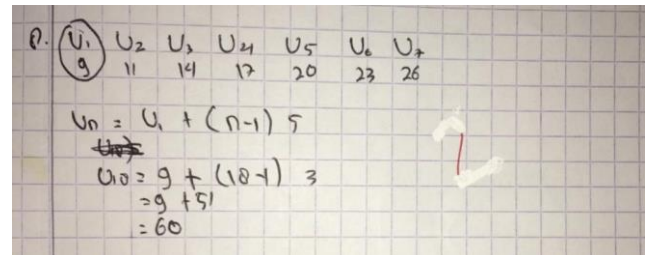 U₁ U₂ U₃ U₄ U₅ U₆ U₇
9 11 14 17 20 23 26
Uₙ = U₁ + (n-1) 5
U₁₈ = 9 + (18-1) 3
= 9 + 51
= 60